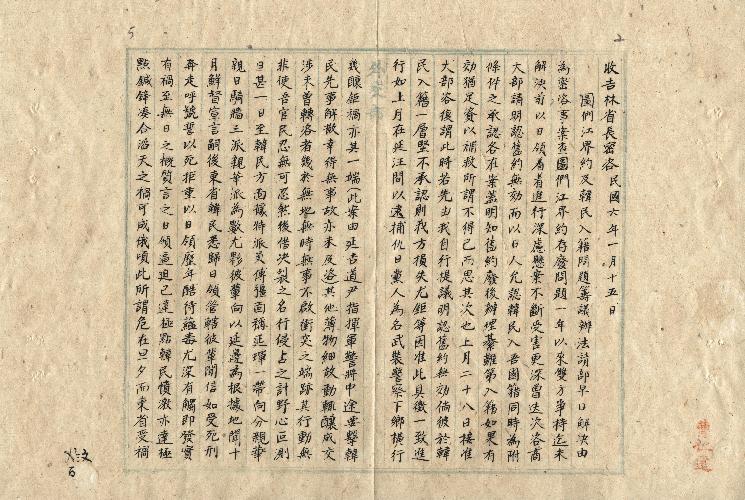 收吉林省長密咨民國六年一月十五日
圖們江界約及韓民入籍問題籌議辦法請部早日解決由
為密咨事案查圖們江界約存廢問題一年以來雙方爭持迄未
解決前以日領着着進行深慮懸案不斷受害更深曾迭次咨商
大部請明認舊約無効而以日人允認韓民入吾國籍同時為附
條件之承認各在案蓋明知舊約廢後辦理綦難第入籍如果有
効猶足資以補救所謂不得已而思其次也上月二十八日接准
大部咨復謂此時若先由我自行提議明認舊約無効倘彼於韓
民入籍一層堅不承認則我方損失尤鉅等因准此具徵一致進
行如上月在延汪間以逮捕仇日黨人為名武裝警察下鄉橫行
幾釀鉅禍亦其一端(此案由延吉道尹指揮軍警將中途要擊韓
民先事解散幸得無事故亦未及咨其他薄物細故動輒釀成交
涉未曾轉咨者幾於無地無時無事不啟衝突之端跡其行動無
非使吾官民忍無可忍然後借決裂之名行侵占之計野心叵測
日甚一日至韓民方面據特派員傅彊面稱延琿一帶向分親華
親日騎牆三派親華派為數尤夥彼輩向以延邊為根據地閏十
月鮮督宣言嗣後東省韓民悉歸日領管轄彼輩聞信如受死刑
奔走呼號誓以死拒重以日領歷年酷待蘊毒尤深有觸即發實
有禍至無日之概質言之日領逼迫已達極點韓民憤激亦達極
點鍼鋒湊合滔天之禍可成俄頃此所謂危在旦夕而東省受禍